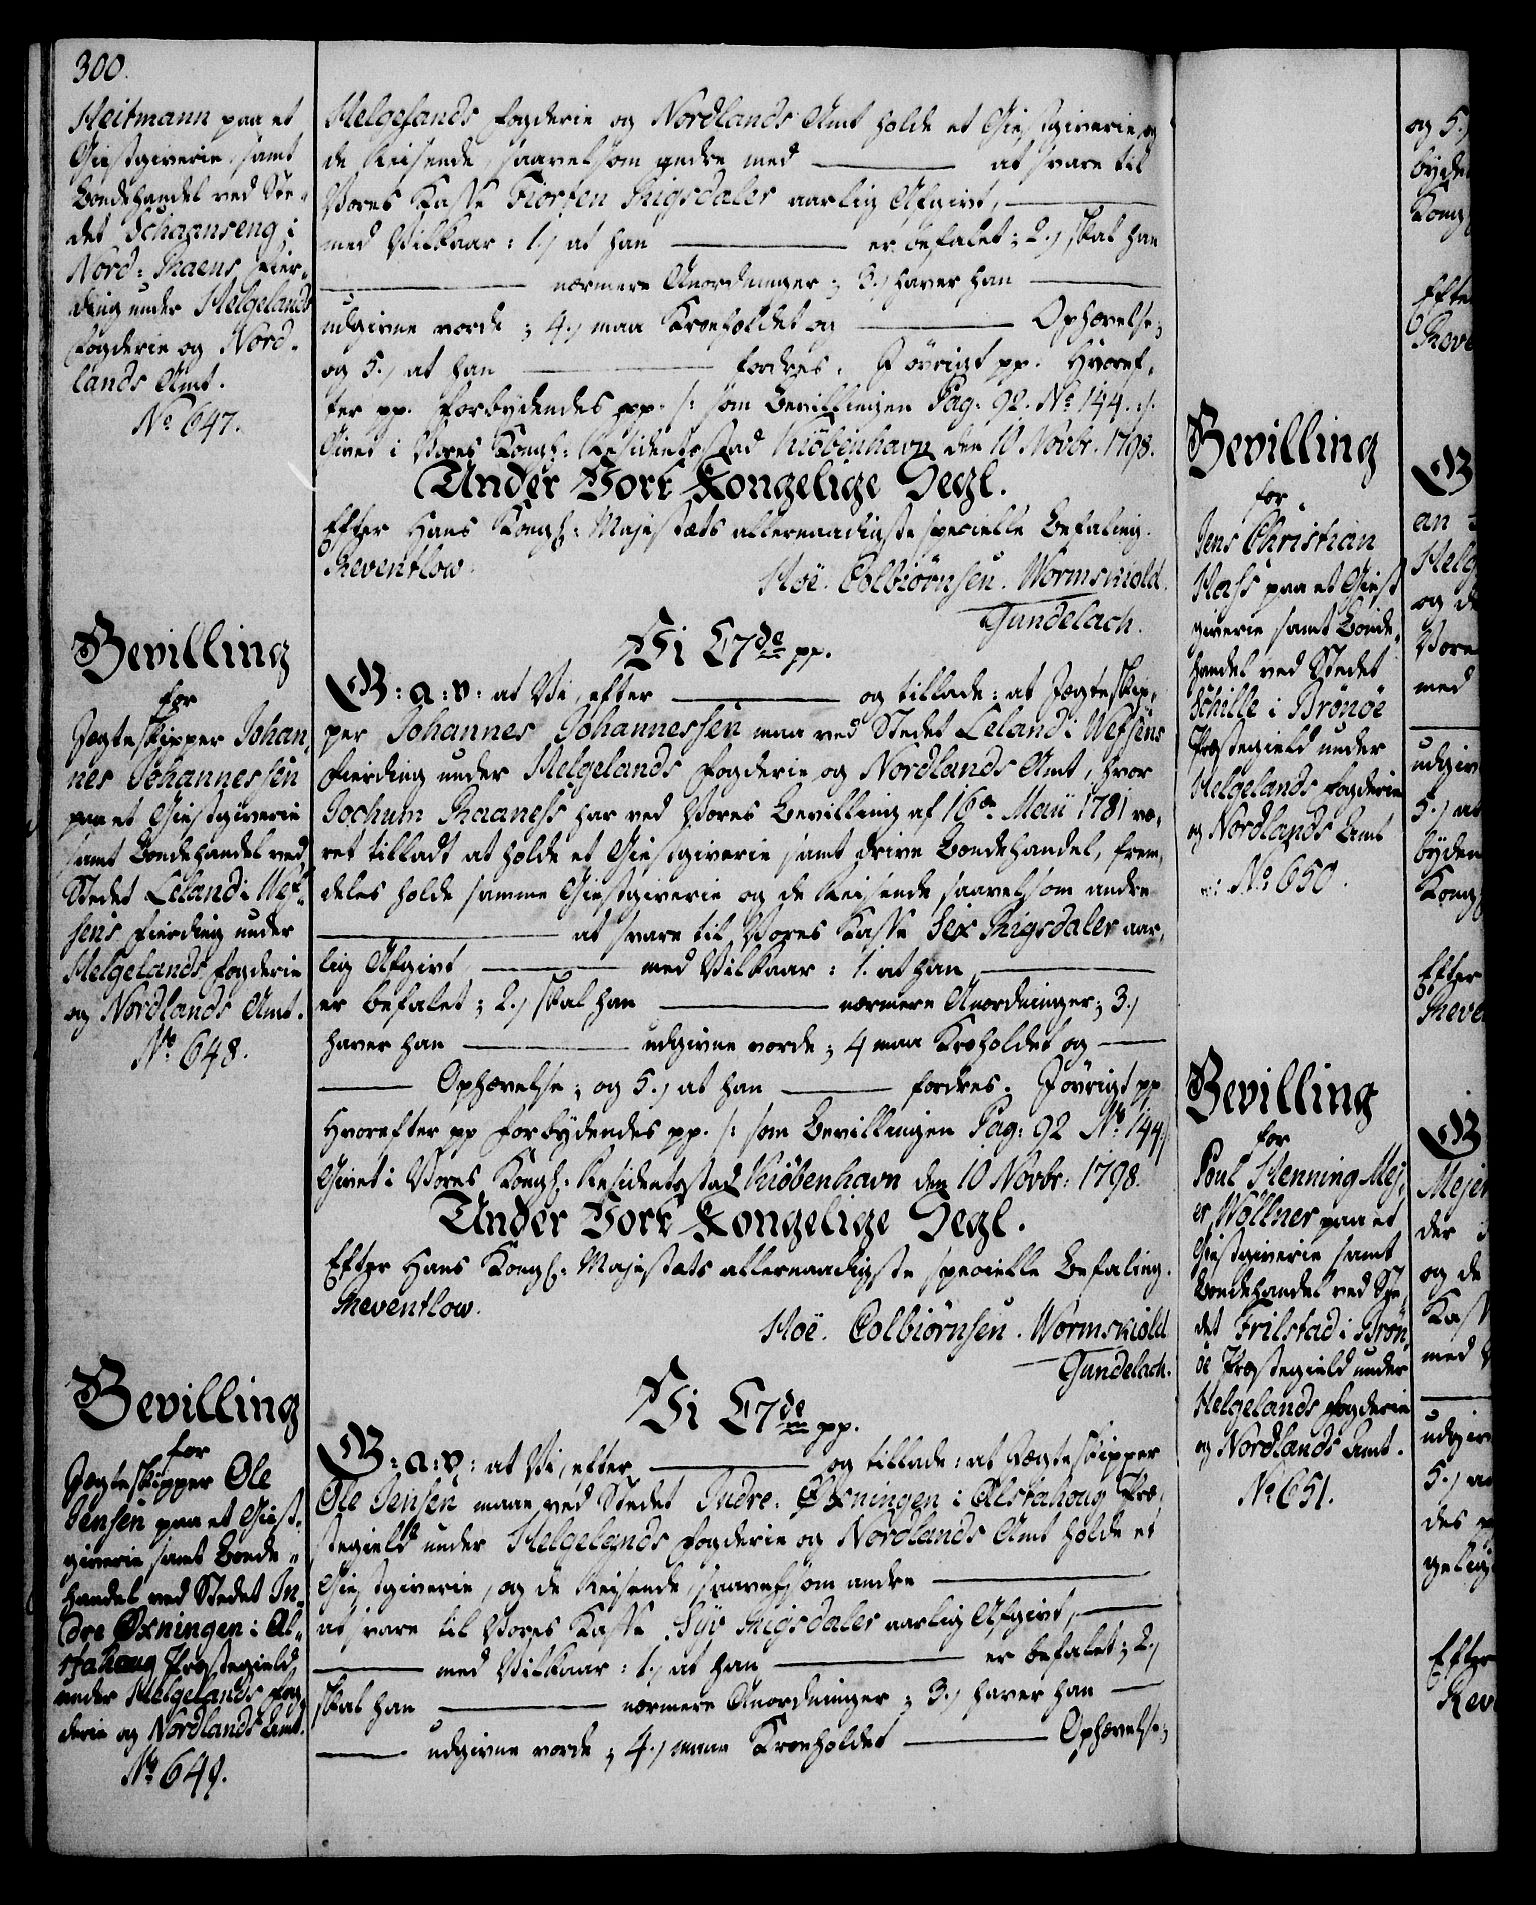 300.
Heitmann paa et
Giestgiverie, samt
Bondehandel ved Ste-
det Schaanseng i
Nord-Ranens Fier-
ding under Helgelands
Fogderie og Nord-
lands Amt.
No 647.
Helgelands Fogderie og Nordlands Amt holde et Giestgiverie, og
de Reisende, saavelsom andre med ——— at svare til
Vores Kasse Fiorten Rigsdaler aarlig Afgivt, ———
med Vilkaar: 1.) at han ——— er befalet; 2.) skal han
——— nærmere Anordninger; 3.) haver han ———
udgivne vorde; 4.) maa Kroeholdet og ——— Ophævelse;
og 5.) at han ——— fordres. I øvrigt pp. Hvoref-
ter pp. Forbydendes pp. /: som Bevillingen Pag: 92. No 144. :/.
Givet i Vores Kongl: Residentsstad Kiöbenhavn den 10 Novbr. 1798.
Under Vort Kongelige Segl.
Efter Hans Kongl: Majestæts allernaadigste specielle Befaling.
Reventlow.
Hoë. Colbiørnsen. Wormskiold.
Gundelach.
Bevilling
for
Jægteskipper Johan-
nes Johannessen
paa et Giestgiverie
samt Bondehandel ved
Stedet Leland i Wef-
sens Fierding under
Helgelands Fogderie
og Nordlands Amt.
No 648.
Vi C7de pp.
G: a: v: at Vi, efter ——— og tillade: at Jægteskip-
per Johannes Johannessen maa ved Stedet Leland i Wefsens
Fierding under Helgelands Fogderie og Nordlands Amt, hvor
Jochum Raaness har ved Vores Bevilling af 16de Maii 1781 væ-
ret tilladt at holde et Giestgiverie samt drive Bondehandel, frem-
deles holde samme Giestgiverie og de Reisende saavelsom andre
——— at svare til Vores Kasse Sex Rigsdaler aar-
lig Afgivt ——— med Vilkaar: 1. at han ———
er befalet; 2.) skal han ——— nærmere Anordninger; 3.)
haver han ——— udgivne vorde; 4 maa Kroholdet og ———
——— Ophævelse; og 5.) at han ——— fordres. I øvrigt pp
Hvorefter pp Forbydendes pp. /: som Bevillingen Pag: 92 No 144 :/
Givet i Vores Kongl: Residentsstad Kiöbenhavn den 10 Novbr: 1798.
Under Vort Kongelige Segl.
Efter Hans Kongl: Majestæts allernaadigste specielle Befaling.
Reventlow.
Hoë. Colbiørnsen. Wormskiold
Gundelach.
Bevilling
for
Jægteskipper Ole
Jensen paa et Giest-
giverie samt Bonde-
handel ved Stedet In-
dre Øxningen i Al-
stahaug Præstegield
under Helgelands Fog-
derie og Nordlands Amt.
No 649.
Vi C7de pp.
G: a: v: at Vi, efter ——— og tillade: at Jægteskipper
Ole Jensen maae ved Stedet Indre Øxningen i Alstahoug Præ-
stegield under Helgelands Fogderie og Nordlands Amt holde et
Giestgiverie, og de Reisende, saavelsom andre ———
at svare til Vores Kasse Syv Rigsdaler aarlig Afgivt, ———
——— med Vilkaar: 1.) at han ——— er befalet; 2.)
skal han ——— nærmere Anordninger; 3.) haver han ———
——— udgivne vorde; 4.) maae Kroeholdet ——— Ophævelse;
Bevilling
for
Jens Christian
Hass paa et Giest-
giverie samt Bonde-
handel ved Stedet
Schille i Brønøe
Præstegield under
Helgelands Fogderie
og Nordlands Amt
No 650.
Bevilling
for
Poul Henning Mej-
er Wöllner paa et
Giestgiverie samt
Bondehandel ved Ste-
det Frilstad i Brøn-
öe Præstegield under
Helgelands Fogderie
og Nordlands Amt.
No 651.
og 5.)
Efter
G
an
og de
Vore
med
5.) at
Kong
Efter
G
Mejer
der
og de
med
5.) at
des
Efter